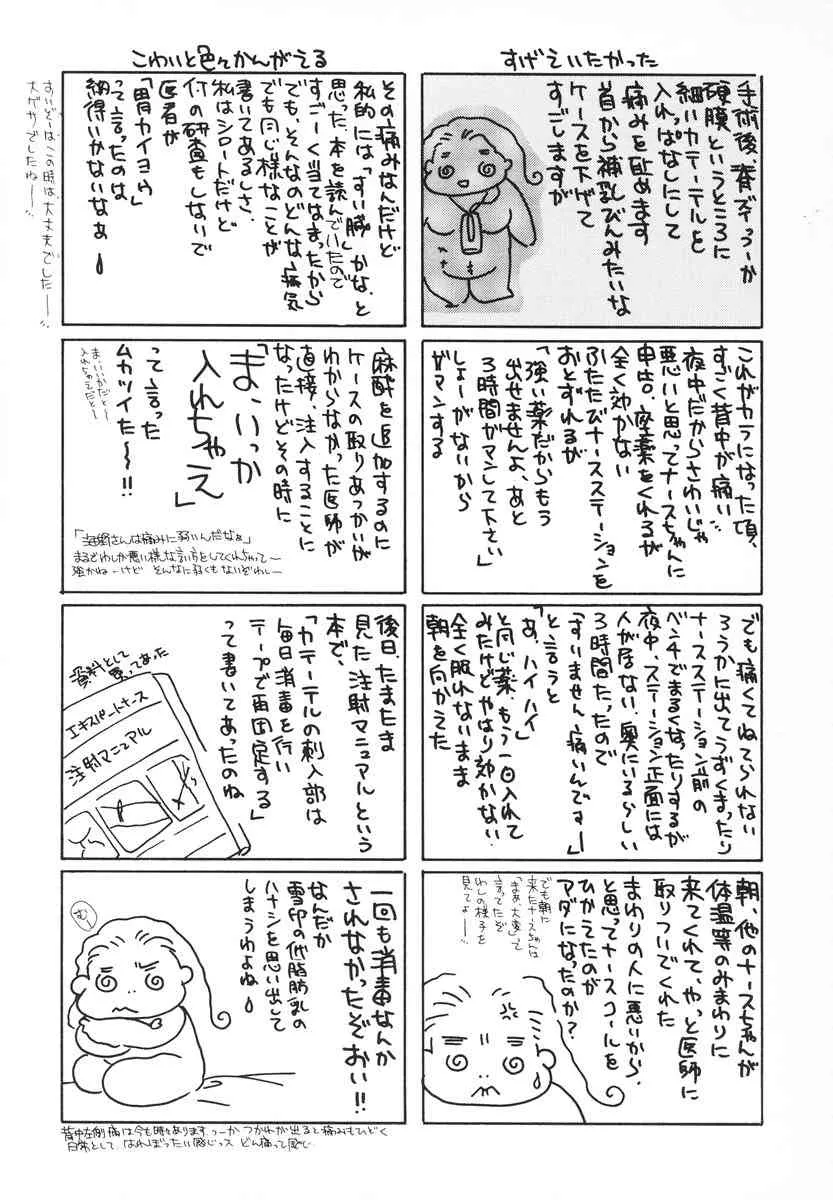 すげえいたかった
手術後、脊ずいっつーか
硬膜というところに
細いカテーテルを
入れっぱなしにして
痛みを止めます
首から補乳びんみたいな
ケースを下げて
すごしますが
これがカラになった頃、
すごく背中が痛い…
夜中だからさわいじゃ
悪いと思ってナースちゃんに
申告。座薬をくれるが
全く効かない
ふたたびナースステーションを
おとずれるが
「強い薬だからもう
出せませんよ、あと
3時間ガマンして下さい」
しょーがないから
ガマンする
でも痛くてねてられない
ろうかに出てうずくまったり
ナースステーション前の
ベンチでまるくなったりするが
夜中、ステーション正面には
人が居ない、奥にいるらしい
3時間たったので
「すいません、痛いんですー」
と言うと
「あ、ハイハイ」
と同じ薬、もう一回入れて
みたけどやはり効かない。
全く眠れないまま
朝を向かえた
朝、他のナースちゃんが
体温等のみまわりに
来てくれて、やっと医師に
取りついでくれた
まわりの人に悪いから、
と思ってナースコールを
ひかえたのが
アダになったのか?
でも朝に
来たナースちゃんは
「まあ、大変」って
言ってたぞ
わしの様子を
見てよー…
こわいと色々かんがえる
その痛みなんだけど
私的には「すい臓」かな、と
思った、本を読んでいたので
すごーく当てはまったから
でも、そんなのどんな病気
でも同じ様なことが
書いてあるしさ、
私はシロートだけど
何の研査もしないで
医者が
「胃カイヨウ」
って言ったのは
納得いかないなぁ
すいぞーはこの時は大丈夫でしたー…
大ゲサでしたねー…
麻酔を追加するのに
ケースの取りあつかいが
わからなかった医師が
直接、注入することに
なったけどその時に
「ま、いっか
入れちゃえ」
って言った
ムカツイた〜!!
ま、いいかだと〜
入れちゃえだと〜
さんは痛みに弱いんだなぁ」
まるでわしが悪い様な言い方をしてくれちゃって〜
強かねーけど そんなに弱くもないぞわしー
後日、たまたま
見た注射マニュアルという
本で、
「カテーテルの刺入部は
毎日消毒を行い
テープで再固定する」
って書いてあったのね
資料として
買ってあった
エキスパートナース
注射マニュアル
一回も消毒なんか
されなかったぞおい!!
なんだか
雪印の低脂肪乳の
ハナシを思い出して
しまうわよね
むー
背中左側痛は今も時々あります つーか つかれが出ると痛みもひどく
日常として はれぼったい感じっス どん痛って風で